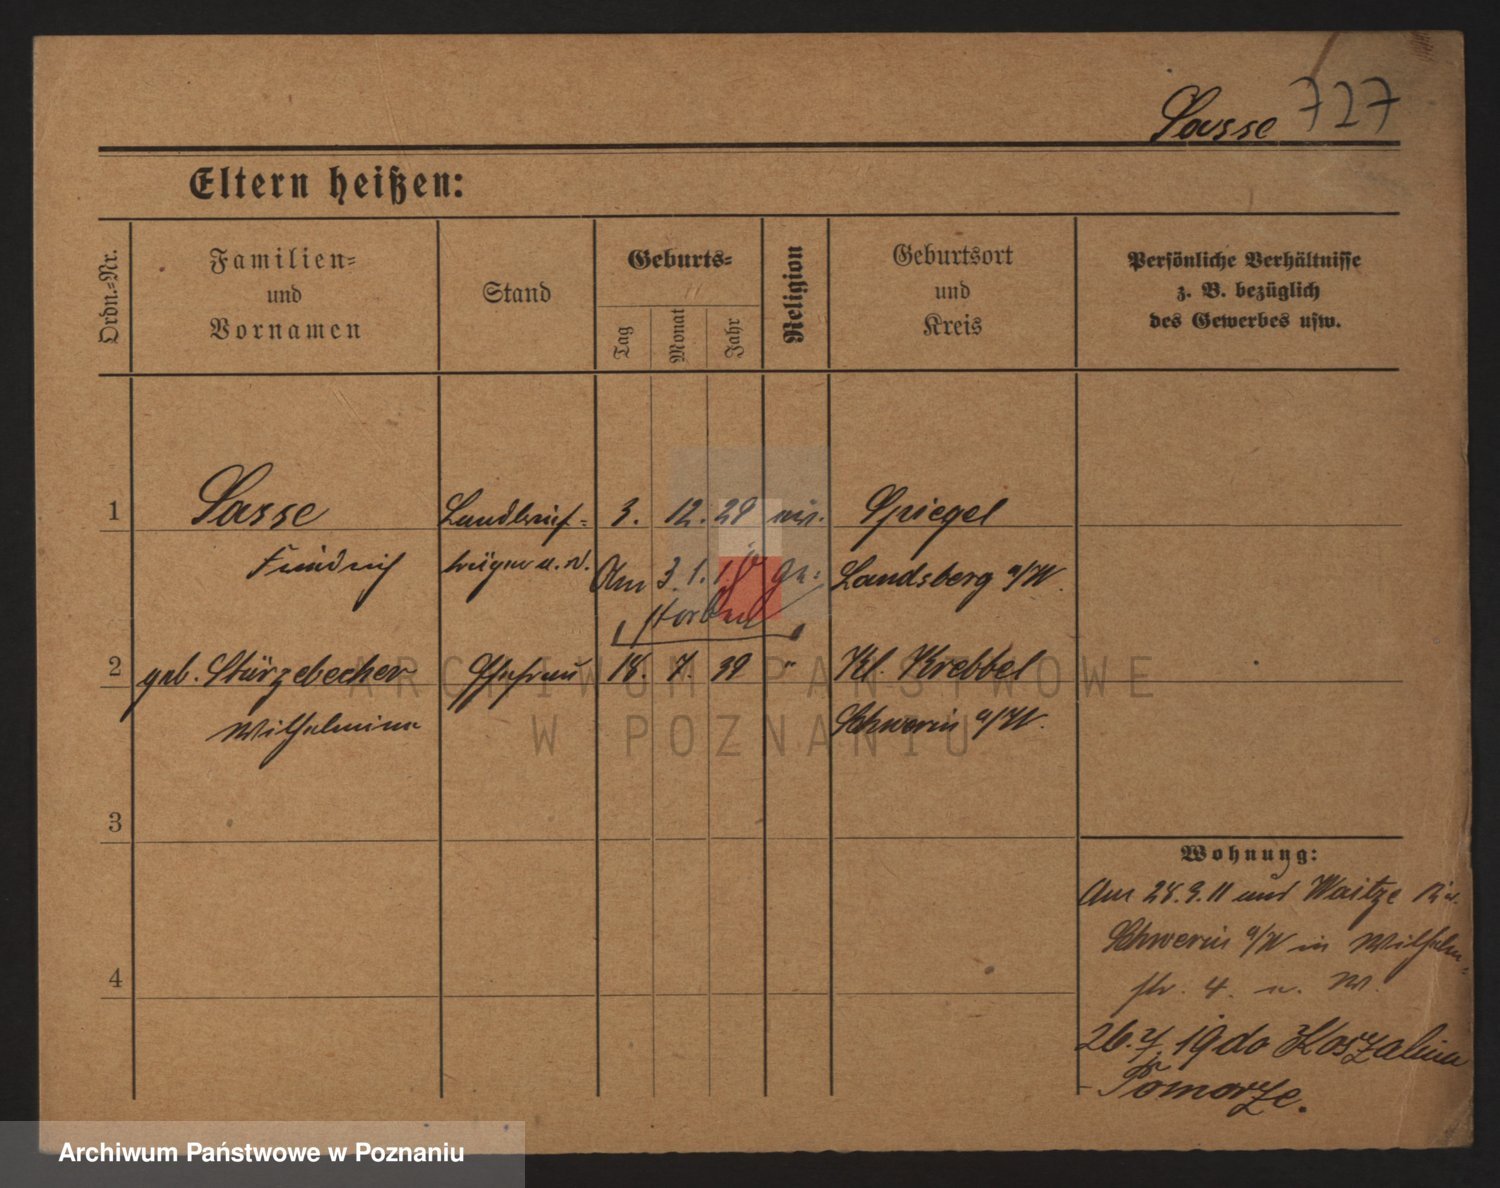 Sasse 727
Eltern heißen:
Ordn.-Nr.
Familien-
und
Vornamen
Stand
Geburts-
Tag
Monat
Jahr
Religion
Geburtsort
und
Kreis
Persönliche Verhältnisse
z. B. bezüglich
des Gewerbes usw.
1 Sasse Landbrief- 3. 12. Spiegel
Friedrich träger a. D. Am 3. 1. ge- Landsberg a/W.
storben
2 geb. Stürzebecher Ehefrau 18. 7. 39 " Kl. Krebbel
Wilhelmine Schwerin a/W.
3
4
Wohnung:
Am 28.9.11 aus Waitze
Schwerin a/W in Wilhelm-
str. 4. u. M.
26.7.19 do Koszalina
- Pomorze.
ARCHIWUM PAŃSTWOWE
W POZNANIU
Archiwum Państwowe w Poznaniu